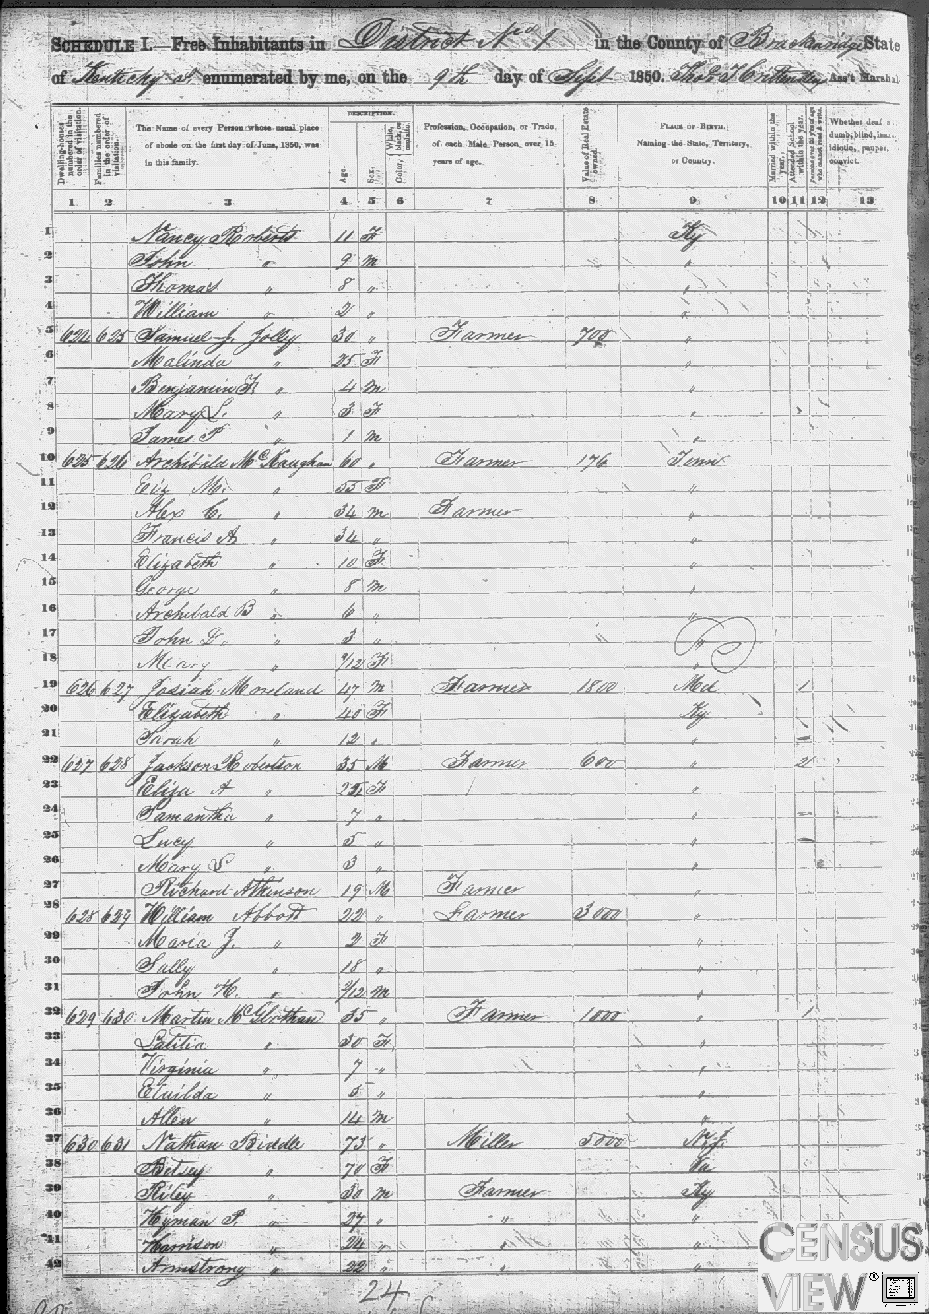 SCHEDULE I.—Free Inhabitants in District No 1 in the County of Breckenridge State
of Kentucky enumerated by me, on the 9th day of Sept 1850. Ass't Marshal
Dwelling-houses numbered in the order of visitation.
Families numbered in the order of visitation.
The Name of every Person whose usual place of abode on the first day of June, 1850, was in this family.
DESCRIPTION.
Age.
Sex.
White, black, or mulatto.
Color,
Profession, Occupation, or Trade, of each Male Person, over 15 years of age.
Value of Real Estate owned.
PLACE OF BIRTH. Naming the State, Territory, or Country.
Married within the year.
Attended School within the year.
Whether deaf & dumb, blind, insane, idiotic, pauper, or convict.
1 2 3 4 5 6 7 8 9 10 11 12 13
1 Nancy Roberts 11 F Ky
2 John " 9 m "
3 Thomas " 8 " "
4 William " 2 " "
5 624 625 Samuel J. Jolly 30 " Farmer 700 "
6 Malinda " 25 F "
7 Benjamin F. " 4 m "
8 Mary L. " 3 F "
9 James P " 1 m "
10 625 626 Archibild McKaughan 60 " Farmer 176 Tenn
11 Eliz M. " 55 F "
12 Alex C. " 34 m Farmer "
13 Francis A " 34 " "
14 Elizabeth " 10 F "
15 George " 8 m "
16 Archibald B " 6 " "
17 John D. " 3 " " "
18 Mary " /12 F "
19 626 627 Josiah Moreland 47 m Farmer 1800 Md 1
20 Elizabeth " 40 F Ky
21 Sarah " 12 " " 1
22 627 628 Jackson Robertson 35 M Farmer 600 " 2
23 Eliza A " 25 F "
24 Samantha " 7 " "
25 Lucy " 5 " "
26 Mary S " 3 " "
27 Richard Atkinson 19 M Farmer "
28 628 629 William Abbott 22 " Farmer 3000 "
29 Maria J. " 2 F "
30 Sally " 18 " "
31 John H. " /12 m "
32 629 630 Martin McGlothan 35 " Farmer 1000 "
33 Latitia " 30 F "
34 Virginia " 7 " "
35 " 5 " "
36 Allen " 14 m "
37 630 631 Nathan Biddle 73 " Miller 5000 N.J.
38 Betsey " 70 F Va
39 Riley " 30 m Farmer Ky
40 Hyman P. " 27 " " "
41 Harrison " 24 " " "
42 Armstrong " 22 " "
24
CENSUS
VIEW®